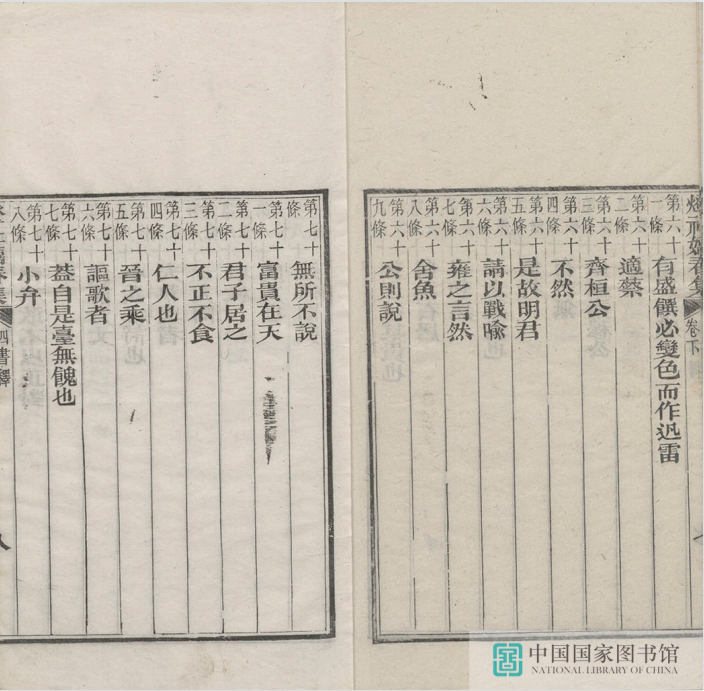 社嬉春集 卷下
第六十一條 有盛饌必變色而作迅雷
第六十二條 適蔡
第六十三條 齊桓公
第六十四條 不然
第六十五條 是故明君
第六十六條 請以戰喻
第六十七條 雍之言然
第六十八條 舍魚
第六十九條 公則說
第七十條 無所不說
第七十一條 富貴在天
第七十二條 君子居之
第七十三條 不正不食
第七十四條 仁人也
第七十五條 晉之乘
第七十六條 謳歌者
第七十七條 葢自是臺無餽也
第七十八條 小弁
春集 四書釋 八
中国国家图书馆
NATIONAL LIBRARY OF CHINA